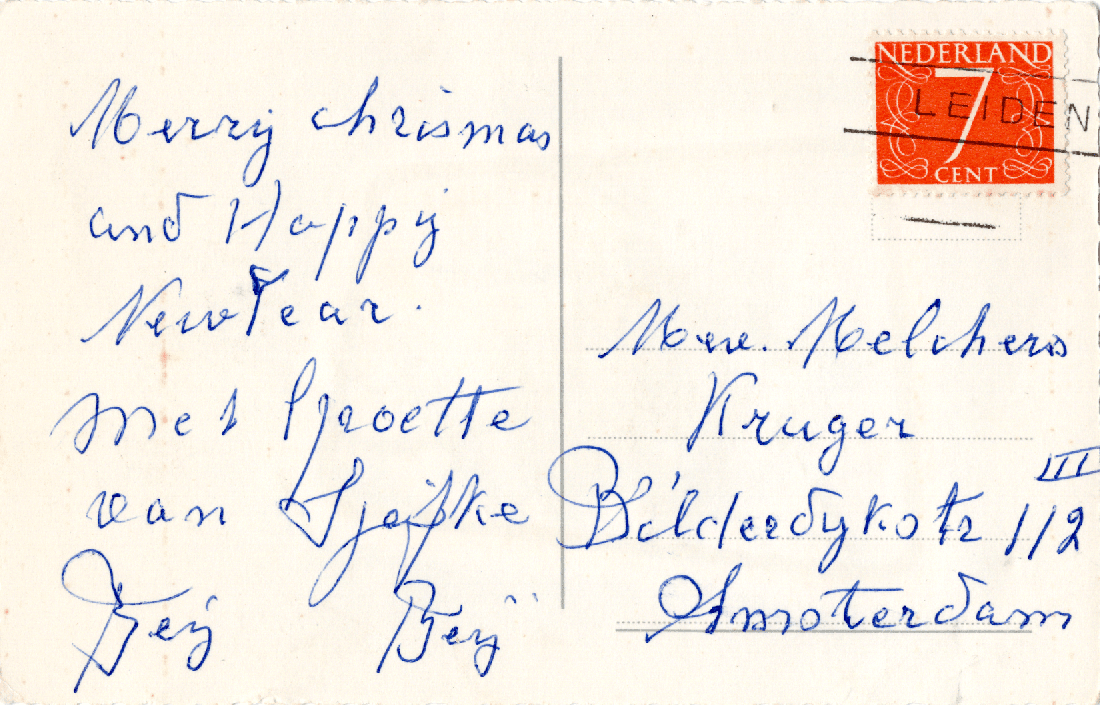 Merry chrismas
and Happy
New Year.
met Groette
van Sjefke
Bey
NEDERLAND
7
LEIDEN
CENT
Mew. Melchers
Kruger
Bilderdykstr 112 III
Amsterdam